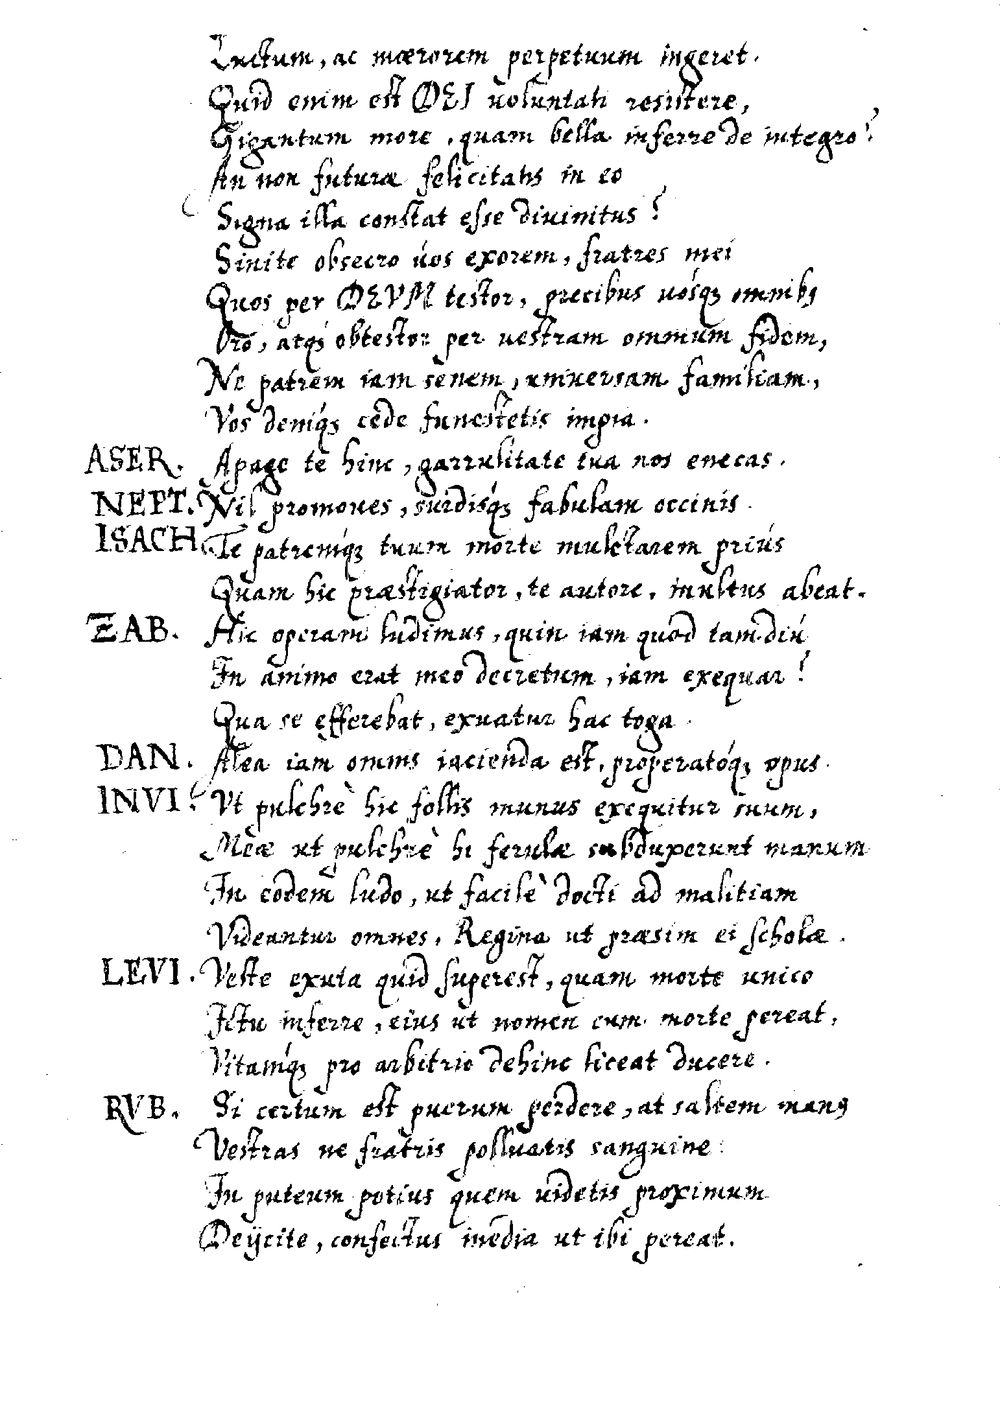 Luctum, ac mœrorem perpetuum ingeret.
Quid enim est DEI uoluntati resistere,
Gigantum more, quam bella inferre de integro?
An non futuræ felicitatis in eo
Signa illa constat esse diuinitus?
Sinite obsecro uos exorem, fratres mei
Quos per DEVM testor, precibus uosq́ꝫ omnibꝰ
Oro, atq́ꝫ obtestor per uestram omnium fidem,
Ne patrem iam senem, uniuersam familiam,
Vos deniq́ꝫ cede funestetis impia.
ASER. Apage te hinc, garrulitate tua nos enecas.
NEPT. Nil promoues, surdisq́ꝫ fabulam occinis.
ISACH. Te patremq́ꝫ tuum morte mulctarem priús
Quam hic præstigiator, te autore, inultus abeat.
ZAB. Hic operam ludimus, quin iam quod tam diu
In animo erat meo decretum, iam exequar?
Qua se efferebat, exuatur hac toga.
DAN. Alea iam omnis iacienda est, properatóq́ꝫ opus.
INVI. Vt pulchrè hic follis munus exequitur suum,
Meæ ut pulchrè hi ferulæ subduxerunt manum
In eodem ludo, ut facilè docti ad malitiam
Videantur omnes, Regina ut præsim ei scholæ.
LEVI. Veste exuta quid superest, quam morte unico
Ictu inferre, eius ut nomen cum morte pereat,
Vitamq́ꝫ pro arbitrio dehinc liceat ducere.
RVB. Si certum est puerum perdere, at saltem manꝰ
Vestras ne fratris polluatis sanguine:
In puteum potius quem uidetis proximum
Deijcite, confectus inedia ut ibi pereat.